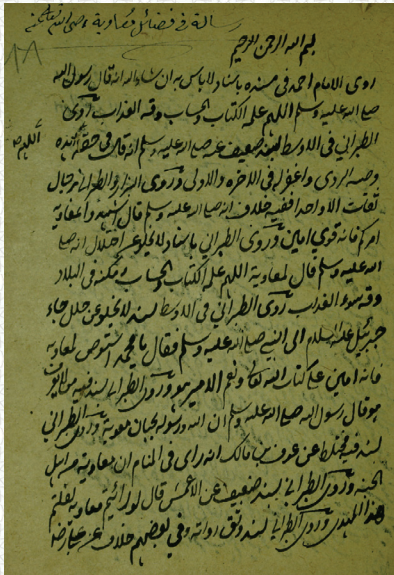 رسالة في فضائل معاوية رضي الله عنه
بسم الله الرحمن الرحيم
روى الامام احمد في مسنده باسناد لا باس به ان شاء الله انه قال رسول الله
صلى الله عليه وسلم اللهم علمه الكتاب والحساب وقه العذاب روى
الطبراني في الاوسط بسند ضعيف عنه صلى الله عليه وسلم انه قال في حقه اهده
اللهم
وجنبه الردى واغفر له في الاخرة والاولى وروى البزار والطبراني برجال
ثقات الا واحد ففيه خلاف انه صلى الله عليه وسلم قال اشهدوا معاوية
امركم فانه قوي امين وروى الطبراني باسناد لا يخلو عن اختلال انه صلى
الله عليه وسلم قال لمعاوية اللهم علمه الكتاب والحساب ومكنه في البلاد
وقه سوء العذاب روى الطبراني في الاوسط بسند لا يخلو عن خلل جاء
جبرئيل عليه السلام الى النبي صلى الله عليه وسلم فقال يا محمد استوص لمعاوية
فانه امين على كتاب الله تعالى ونعم الامين هو وروى الطبراني بسند فيه من لا يعرف
هو قال رسول الله صلى الله عليه وسلم ان الله ورسوله يحبان معوية وروى الطبراني
بسند فيه مختلط عن عوف بن مالك انه راى في المنام ان معاوية من اهل
الجنة وروى الطبراني بسند ضعيف عن الاعمش قال لو رأيتم معاوية لقلتم
هذا المهدى وروى الطبراني بسند وثق رواته وفي بعضهم خلاف عن